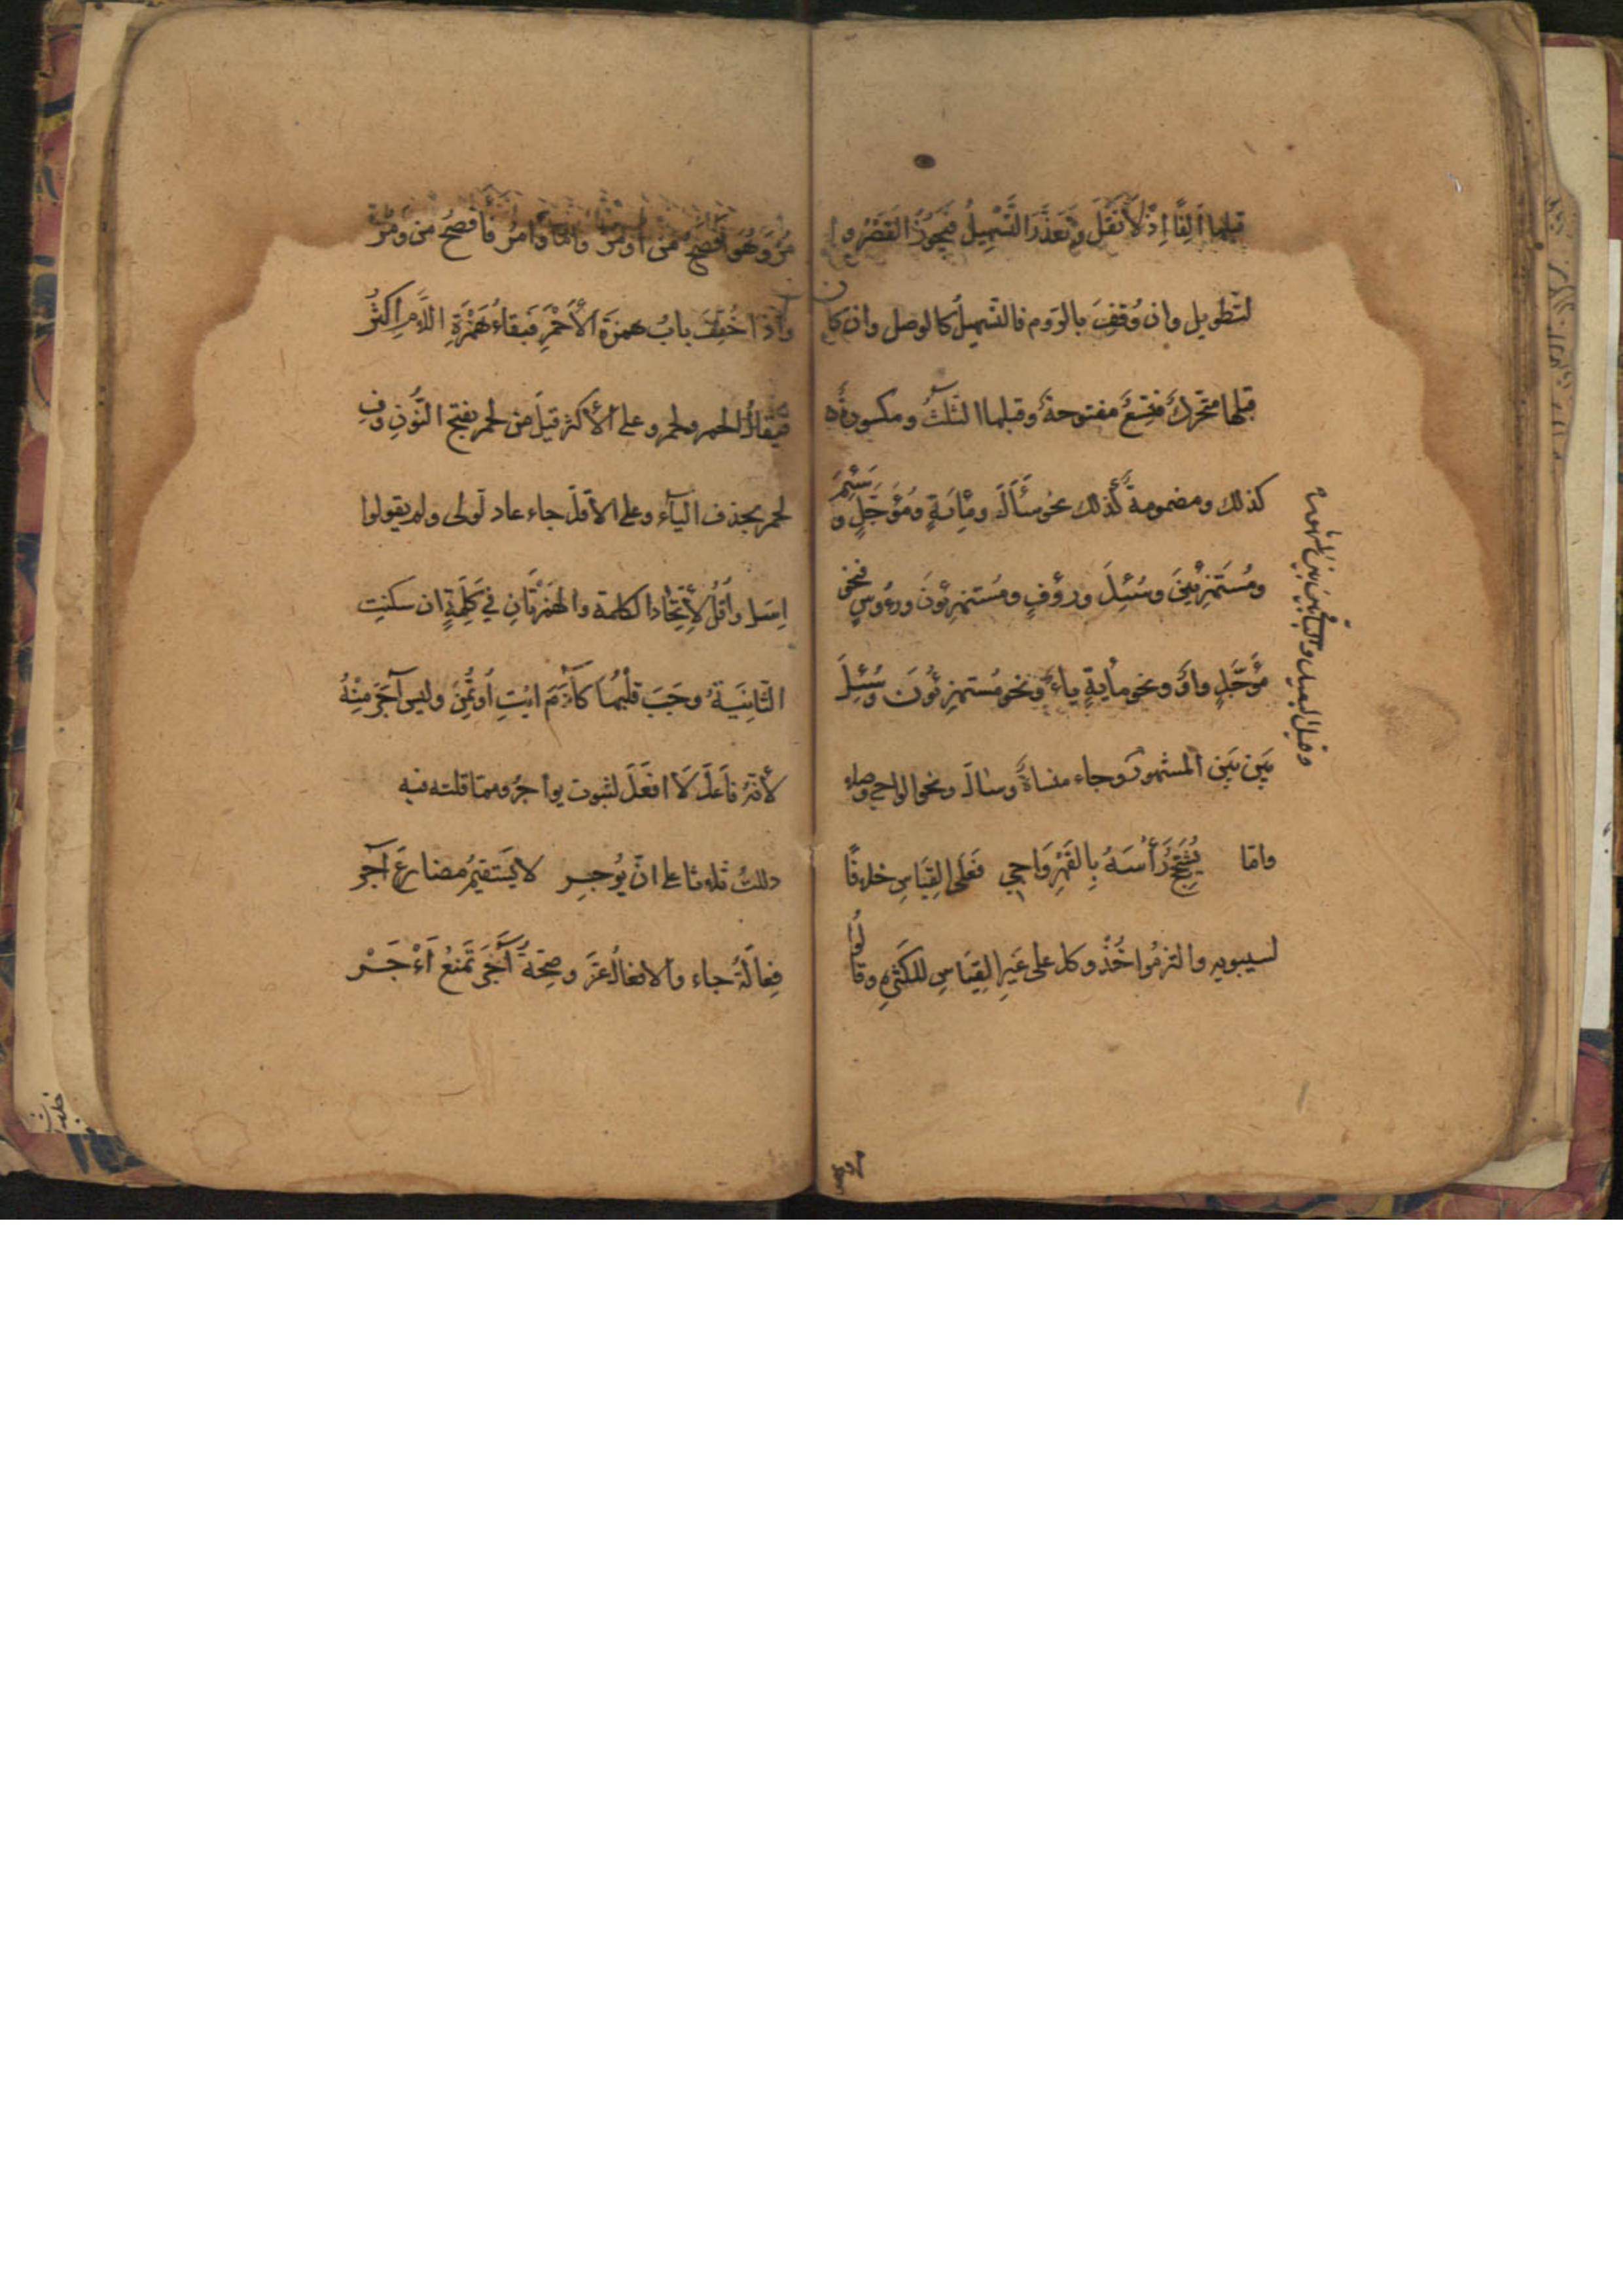 قبلها ألفًا إذ لا نقل وتعذّر التّسهيل فيجوز القصر وا
لتطويل وان وُقِفَ بالرّوم فالتسهيل كالوصل وان كان
قبلها متحرّك فتسع مفتوحة وقبلها الثلث ومكسورة
كذلك ومضمومة كذلك نحو سَأَلَ ومِائَةٍ ومُؤَجَّلٍ وسَئِمَ
ومُستَهزِئِينَ وسُئِلَ ورؤفٍ ومُستهزِئونَ ورءُوسٍ فنحو
مؤجَّلٍ واوٌ ونحو مايةٍ ياءٌ ونحو مُستهزِئونَ وسُئِلَ
بَين بَين المشهور وجاء منساة وسال ونحو الواجي وصلا
واما يُشَجِّجُ رَأسَهُ بِالفِهْرِ وَاجِي فعَلَى القِيَاسِ خلافًا
لسيبويه والتزمُوا خُذْ وكل على غَيرِ القِيَاسِ للكثرة وقالُوا
وقيل البعيد والباقي بين بين المشهور
مُرْ وَهُوَ أفصَحُ من اُومُرْ وامّا وَأْمُرْ فأفصحُ من ومُرْ
واذا خُفِّفَ بابُ همزة الأَحْمَرِ فبقاءُ هَمْزَةِ اللّامِ اكثرُ
فيقالُ الحمر ولحمر وعلى الأكثر قيل مِن لحمر بفتح النُّونِ وفِ
لحمر بحذف اليآء وعلى الأقلّ جاء عاد لّولى ولم يقولوا
اِسَل ولا اُقُلْ لاِتّحاد الكلمة والهمزتان في كَلِمَةٍ ان سكنتِ
الثّانِيَةُ وجَبَ قلبُها كآدَمَ ايْتِ اُوتُمِنَ وليس آجَرَ مِنْهُ
لأنّهُ فَاعَلَ لَا افْعَلَ لثبوت يواجرُ ومما قلته فيه
دللتُ ثلاثا على انّ يُوجِر لا يَستقيمُ مضارعَ آجر
فِعَالَةٌ جاء والافعالُ عَزَّ وصِحّةُ آجَرَ تَمنَعُ أَءْجَرْ